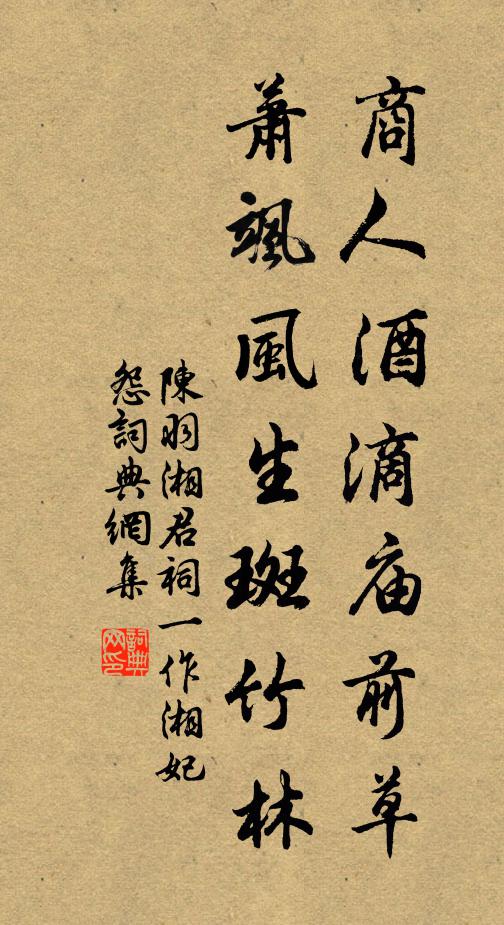 商人酒滴庙前草
蕭颯風生斑竹林
陳羽湘君祠一作湘妃
怨詞典網集
詞典網印